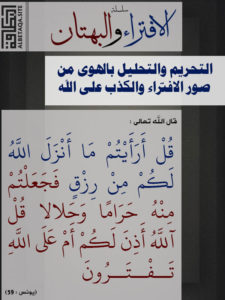 سلسلة
الافتراء والبهتان
البطاقة
ALBETAQA.SITE
التحريم والتحليل بالهوى من
صور الافتراء والكذب على الله
قال اللّٰه تعالى :
قُلْ أَرَأَيْتُمْ مَا أَنْزَلَ اللَّهُ
لَكُمْ مِنْ رِزْقٍ فَجَعَلْتُمْ
مِنْهُ حَرَامًا وَحَلَالًا قُلْ
آللَّهُ أَذِنَ لَكُمْ أَمْ عَلَى اللَّهِ
تَفْتَرُونَ
(يونس : 59)